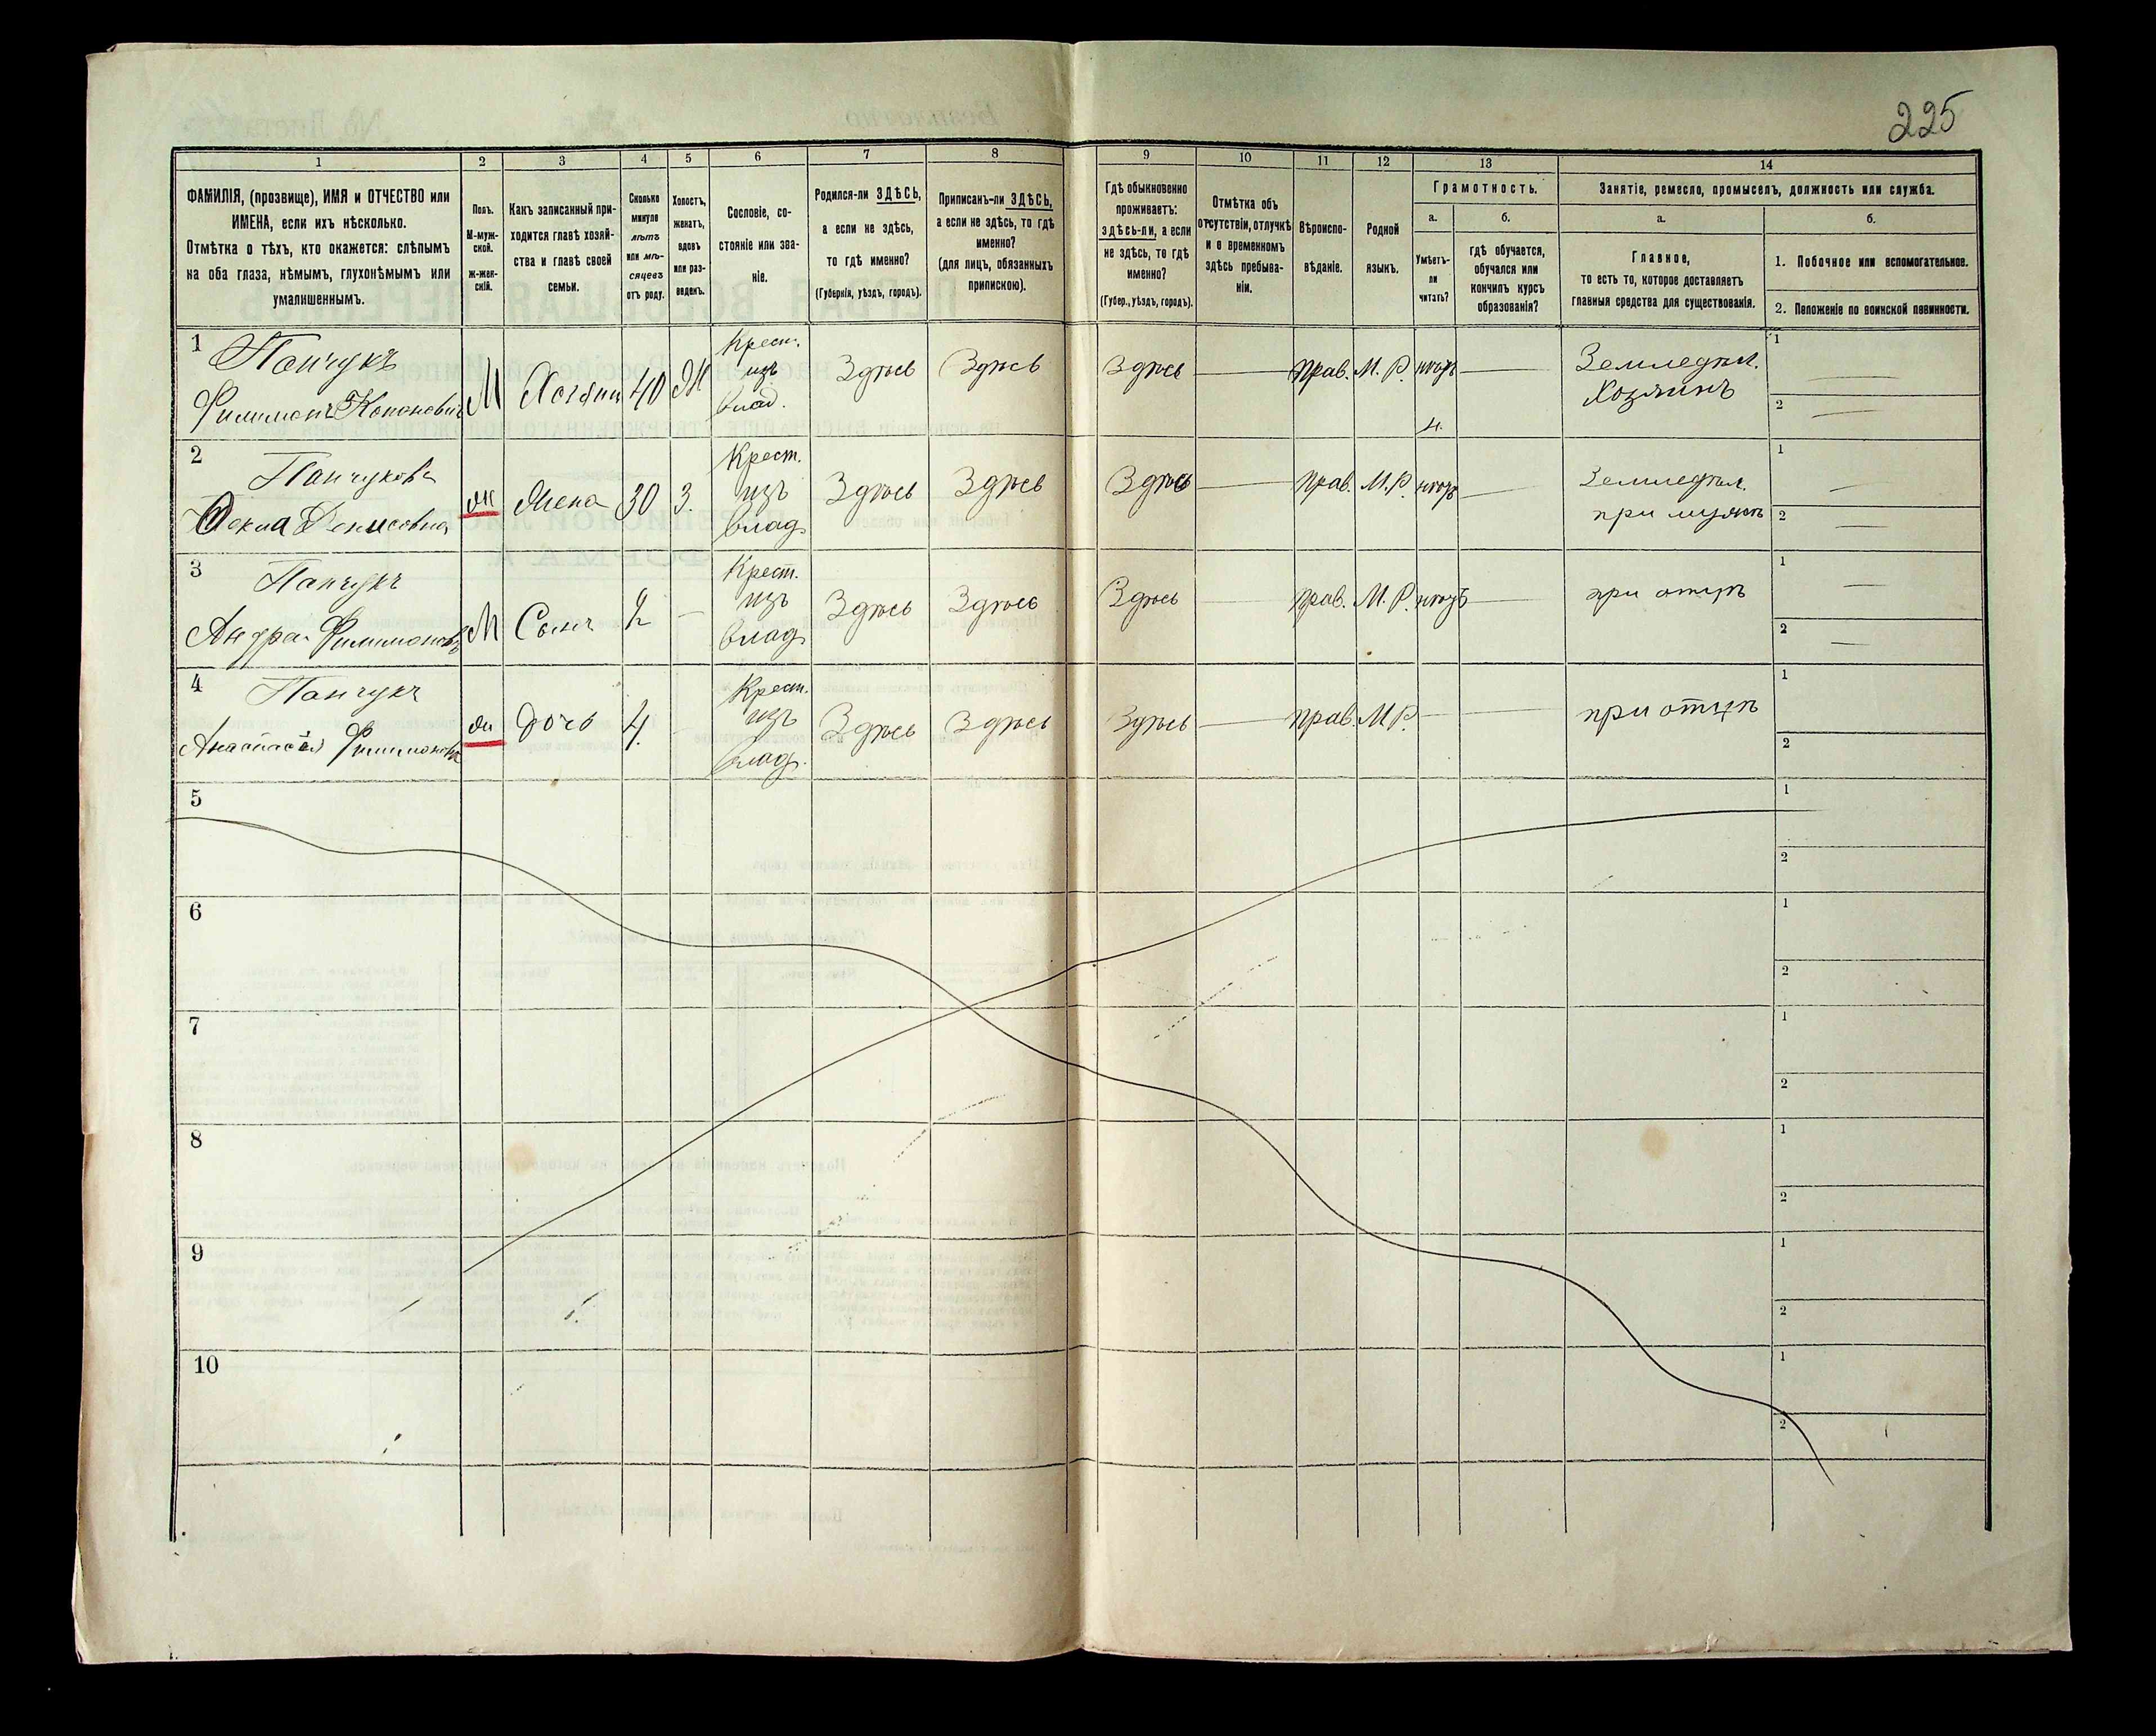 225
1 2 3 4 5 6 7 8 9 10 11 12 13 14
ФАМИЛІЯ, (прозвище), ИМЯ и ОТЧЕСТВО или
ИМЕНА, если ихъ нѣсколько.
Отмѣтка о тѣхъ, кто окажется: слѣпымъ
на оба глаза, нѣмымъ, глухонѣмымъ или
умалишеннымъ.
Полъ.
М-муж-
ской.
ж-жен-
скій.
Какъ записанный при-
ходится главѣ хозяй-
ства и главѣ своей
семьи.
Сколько
минуло
лѣтъ
или мѣ-
сяцевъ
отъ роду.
Холостъ,
женатъ,
вдовъ
или раз-
веденъ.
Сословіе, со-
стояніе или зва-
ніе.
Родился-ли ЗДѢСЬ,
а если не здѣсь,
то гдѣ именно?
(Губернія, уѣздъ, городъ).
Приписанъ-ли ЗДѢСЬ,
а если не здѣсь, то гдѣ
именно?
(для лицъ, обязанныхъ
припискою).
Гдѣ обыкновенно
проживаетъ:
здѣсь-ли, а если
не здѣсь, то гдѣ
именно?
(Губер., уѣздъ, городъ).
Отмѣтка объ
отсутствіи, отлучкѣ
и о временномъ
здѣсь пребыва-
ніи.
Вѣроиспо-
вѣданіе.
Родной
языкъ.
Грамотность.
а. б.
Умѣетъ-
ли
читать?
гдѣ обучается,
обучался или
кончилъ курсъ
образованія?
Занятіе, ремесло, промыселъ, должность или служба.
а. б.
Главное,
то есть то, которое доставляетъ
главныя средства для существованія.
1. Побочное или вспомогательное.
2. Положеніе по воинской повинности.
1 Панчукъ
Филимонъ Кононовичъ М Хозяинъ 40 Ж Крест. изъ влад. Здѣсь Здѣсь Здѣсь прав. М. Р. нѣтъ Земледѣл. Хозяинъ 1 2
ч.
2 Панчукова
Фекла Денисовна ж Жена 30 З. Крест. изъ влад. Здѣсь Здѣсь Здѣсь прав. М. Р. нѣтъ Земледѣл. при мужѣ 1 2
3 Панчукъ
Филимоновъ М Сынъ Крест. изъ влад. Здѣсь Здѣсь Здѣсь прав. М. Р. нѣтъ при отцѣ 1 2
4 Панчукъ
Анастасія Филимонова ж Дочь 4. Крест. изъ влад. Здѣсь Здѣсь Здѣсь прав. М Р. при отцѣ 1 2
5 1 2
6 1 2
7 1 2
8 1 2
9 1 2
10 1 2